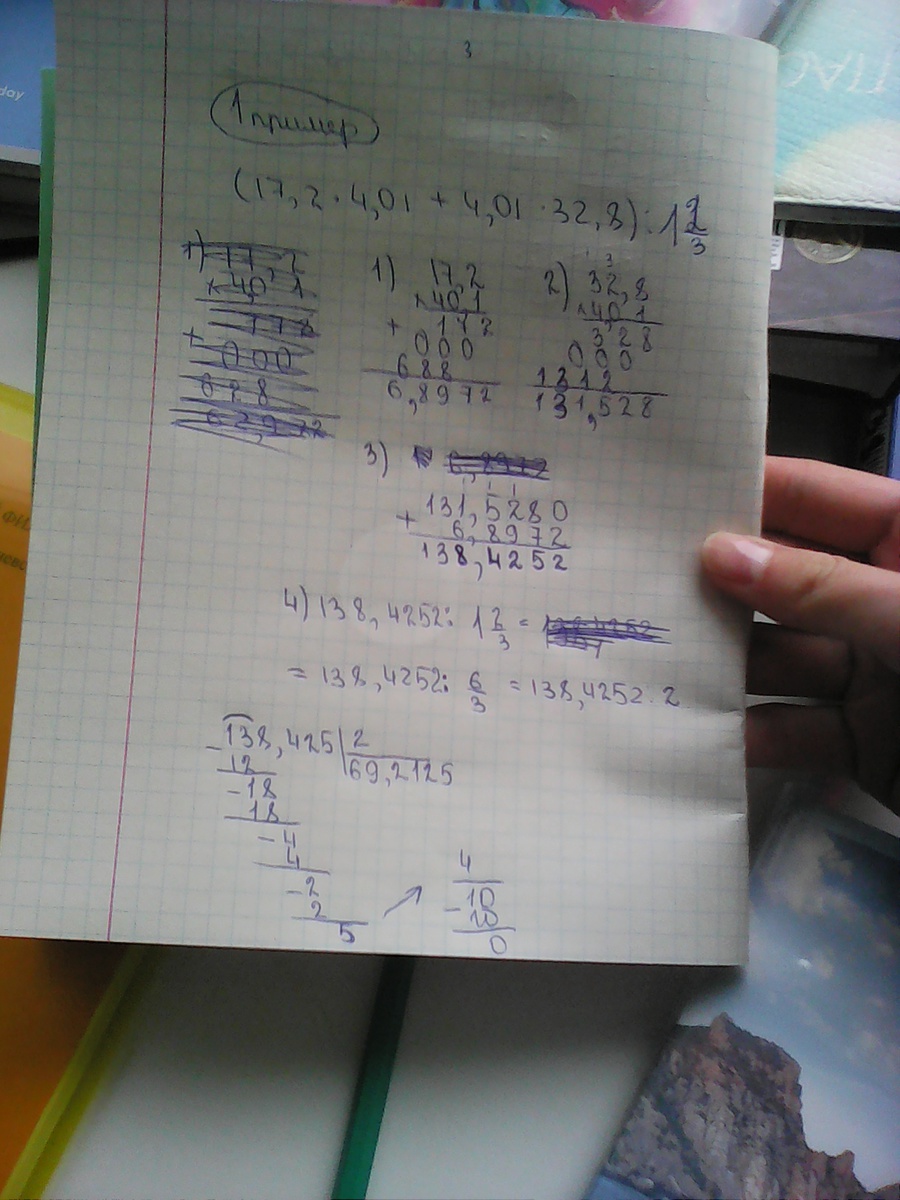 3
1 пример
(17,2 · 4,01 + 4,01 · 32,8) : 1 2/3
1) 17,2
× 40,1
+ 172
000
688
6,8972
2) 32,8
× 40,1
3,28
000
1312
131,528
3)
131,5280
+ 6,8972
138,4252
4) 138,4252 : 1 2/3 =
= 138,4252 : 6/3 = 138,4252 · 2
138,425 | 2
69,2125
- 12
- 18
18
- 4
4
- 2
2
5
4
10
- 10
0
day